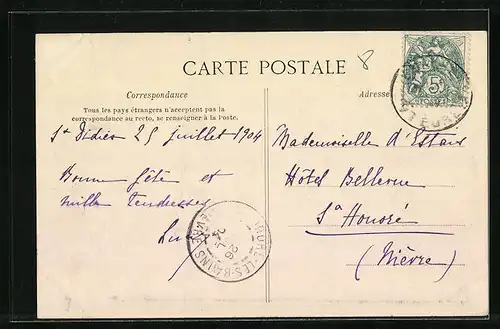 8
CARTE POSTALE
5c
Correspondance
Adresse
Tous les pays étrangers n'acceptent pas la
correspondance au recto, se renseigner à la Poste.
St Didier 25 juillet 1904
Bonne fête et
mille tendresses
Mademoiselle d'Estais
Hôtel Bellevue
St Honoré
(Nièvre)
LES-BAINS
26